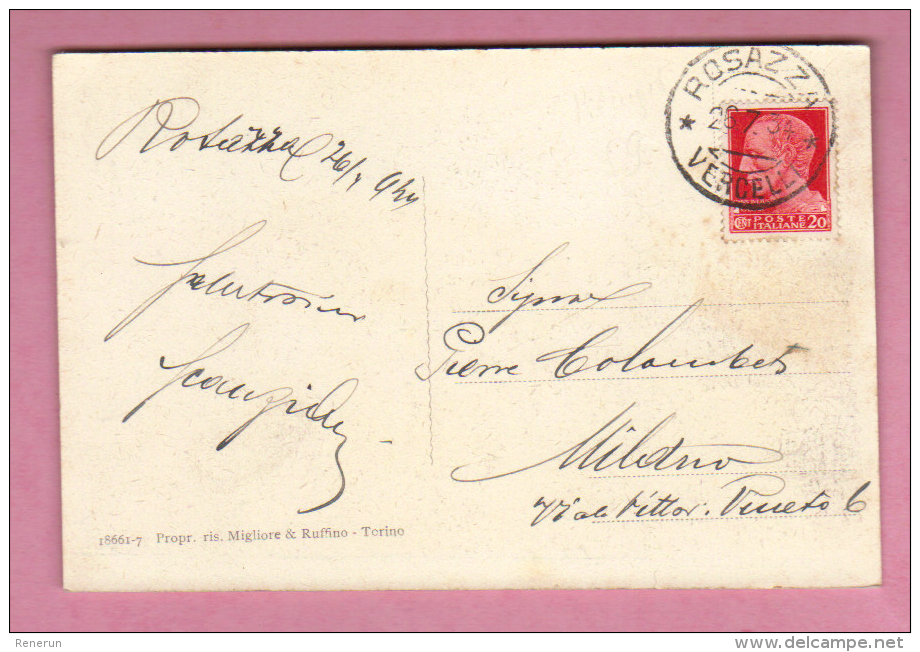 ROSAZZA
VERCELLI
CENT POSTE ITALIANE 20
Rosazza 26/7
Signor
Pierre Colombet
Milano
Vittor. Veneto 6
18661-7 Propr. ris. Migliore & Ruffino - Torino
Renerun
www.delcampe.net